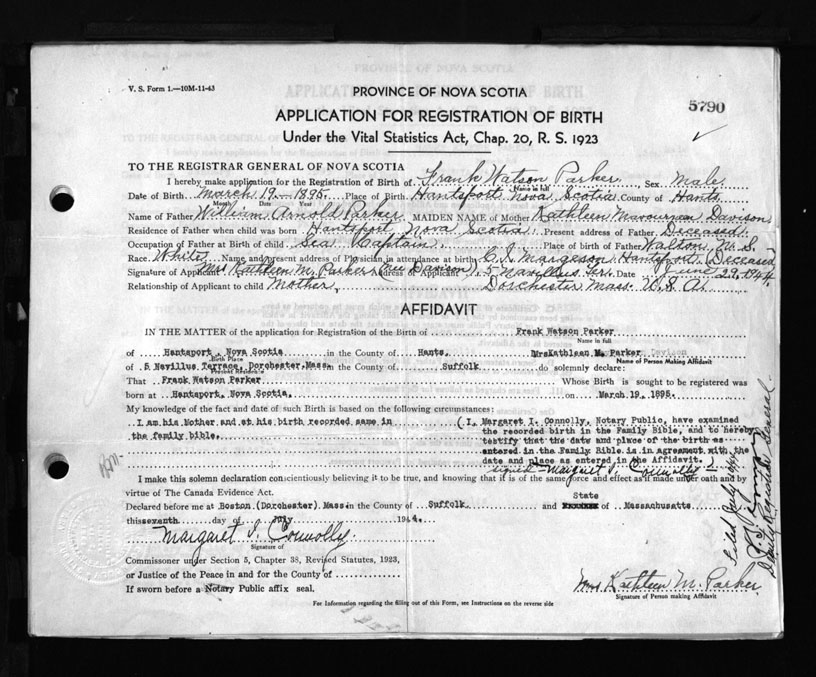 V. S. Form 1.—10M-11-43
PROVINCE OF NOVA SCOTIA
5790
APPLICATION FOR REGISTRATION OF BIRTH
Under the Vital Statistics Act, Chap. 20, R. S. 1923
TO THE REGISTRAR GENERAL OF NOVA SCOTIA
I hereby make application for the Registration of Birth of Frank Watson Parker, Sex Male
Name in full
Date of Birth March 19 — 1895. Place of Birth Hantsport Nova Scotia County of Hants
Month Date Year
Name of Father William Arnold Parker MAIDEN NAME of Mother Kathleen Mavourean Davison
Residence of Father when child was born Hantsport, Nova Scotia. Present address of Father Deceased
Occupation of Father at Birth of child Sea Captain. Place of birth of Father Walton, N.S.
Race White Name and present address of Physician in attendance at birth C. I. Margeson Hantsport Deceased
Signature of Applicant Mrs Kathleen M. Parker (nee Davison) Address of Applicant 5 Navillus Ter. Date June 29, 1944.
Relationship of Applicant to child Mother, Dorchester Mass. U. S. A.
AFFIDAVIT
IN THE MATTER of the application for Registration of the Birth of Frank Watson Parker
Name in full
of Hantsport, Nova Scotia in the County of Hants, Mrs Kathleen M. Parker Davison
Birth Place Name of Person Making Affidavit
of 5 Navillus Terrace, Dorchester, Mass. in the County of Suffolk do solemnly declare:
Present Residence
That Frank Watson Parker Whose Birth is sought to be registered was
born at Hantsport, Nova Scotia, on March 19, 1895.
My knowledge of the fact and date of such Birth is based on the following circumstances:
I am his Mother and at his birth recorded same in
the family bible.
( I, Margaret I. Connolly, Notary Public, have examined
the recorded birth in the Family Bible, and to hereby
testify that the date and place of the birth as
entered in the Family Bible is in agreement with the
date and place as entered in the Affidavit. )
signed - Margaret I. Connolly
I make this solemn declaration conscientiously believing it to be true, and knowing that it is of the same force and effect as if made under oath and by
virtue of The Canada Evidence Act.
Declared before me at Boston (Dorchester) Mass. in the County of Suffolk and State of Massachusetts
this seventh day of July 1944.
Margaret I. Connolly
Signature of
Commissioner under Section 5, Chapter 38, Revised Statutes, 1923,
or Justice of the Peace in and for the County of
If sworn before a Notary Public affix seal.
Mrs Kathleen M. Parker
Signature of Person making Affidavit
For Information regarding the filling out of this Form, see Instructions on the reverse side
Filed July
Deputy Registrar General